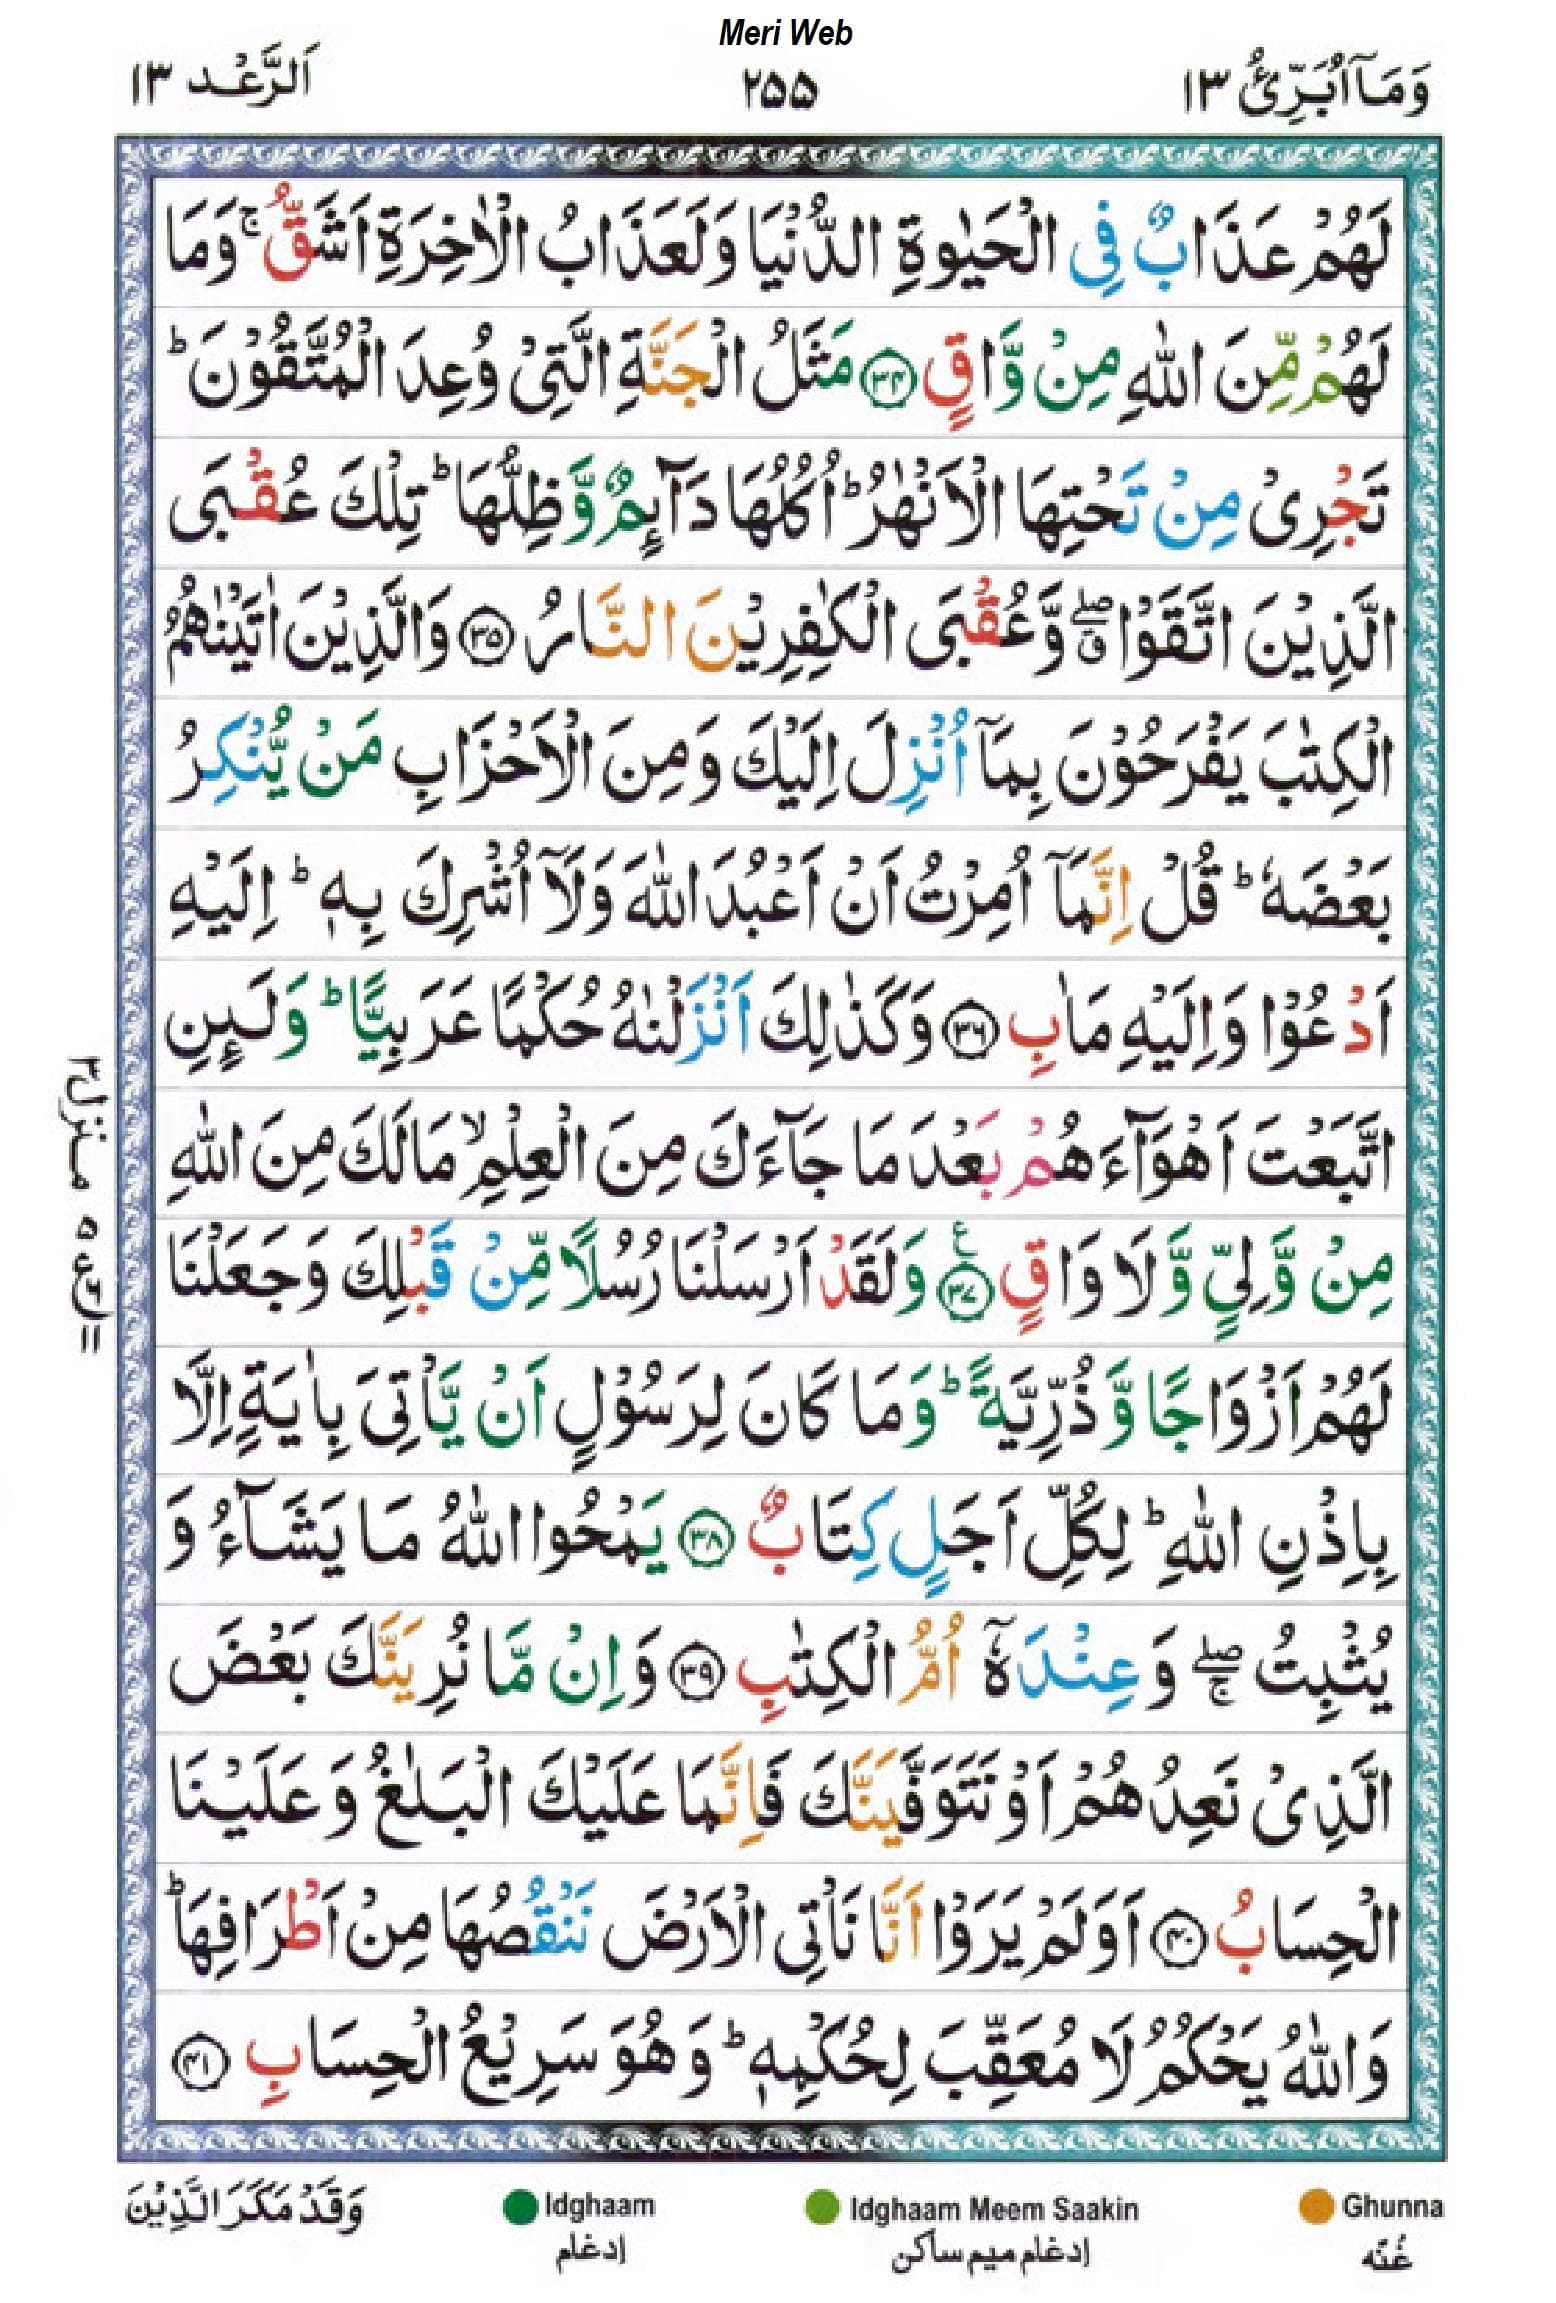 Meri Web
وَمَآ اُبَرِّئُ ١٣ ٢٥٥ اَلرَّعْد ١٣
لَهُمْ عَذَابٌ فِى الْحَيٰوةِ الدُّنْيَا وَلَعَذَابُ الْاٰخِرَةِ اَشَقُّ ۚ وَمَا
لَهُمْ مِّنَ اللّٰهِ مِنْ وَّاقٍ ﴿٣٤﴾ مَثَلُ الْجَنَّةِ الَّتِىْ وُعِدَ الْمُتَّقُوْنَ ؕ
تَجْرِىْ مِنْ تَحْتِهَا الْاَنْهٰرُ ؕ اُكُلُهَا دَآئِمٌ وَّظِلُّهَا ؕ تِلْكَ عُقْبَى
الَّذِيْنَ اتَّقَوْا ۖۗ وَّعُقْبَى الْكٰفِرِيْنَ النَّارُ ﴿٣٥﴾ وَالَّذِيْنَ اٰتَيْنٰهُمُ
الْكِتٰبَ يَفْرَحُوْنَ بِمَآ اُنْزِلَ اِلَيْكَ وَمِنَ الْاَحْزَابِ مَنْ يُّنْكِرُ
بَعْضَهٗ ؕ قُلْ اِنَّمَآ اُمِرْتُ اَنْ اَعْبُدَ اللّٰهَ وَلَآ اُشْرِكَ بِهٖ ؕ اِلَيْهِ
اَدْعُوْا وَاِلَيْهِ مَاٰبِ ﴿٣٦﴾ وَكَذٰلِكَ اَنْزَلْنٰهُ حُكْمًا عَرَبِيًّا ؕ وَلَئِنِ
اتَّبَعْتَ اَهْوَآءَهُمْ بَعْدَ مَا جَآءَكَ مِنَ الْعِلْمِ ۙ مَالَكَ مِنَ اللّٰهِ
مِنْ وَّلِىٍّ وَّلَا وَاقٍ ﴿٣٧﴾ ع وَلَقَدْ اَرْسَلْنَا رُسُلًا مِّنْ قَبْلِكَ وَجَعَلْنَا
لَهُمْ اَزْوَاجًا وَّذُرِّيَّةً ؕ وَمَا كَانَ لِرَسُوْلٍ اَنْ يَّاْتِىَ بِاٰيَةٍ اِلَّا
بِاِذْنِ اللّٰهِ ؕ لِكُلِّ اَجَلٍ كِتَابٌ ﴿٣٨﴾ يَمْحُوا اللّٰهُ مَا يَشَآءُ وَ
يُثْبِتُ ۖۚ وَعِنْدَهٗٓ اُمُّ الْكِتٰبِ ﴿٣٩﴾ وَاِنْ مَّا نُرِيَنَّكَ بَعْضَ
الَّذِىْ نَعِدُهُمْ اَوْ نَتَوَفَّيَنَّكَ فَاِنَّمَا عَلَيْكَ الْبَلٰغُ وَعَلَيْنَا
الْحِسَابُ ﴿٤٠﴾ اَوَلَمْ يَرَوْا اَنَّا نَاْتِى الْاَرْضَ نَنْقُصُهَا مِنْ اَطْرَافِهَا ؕ
وَاللّٰهُ يَحْكُمُ لَا مُعَقِّبَ لِحُكْمِهٖ ؕ وَهُوَ سَرِيْعُ الْحِسَابِ ﴿٤١﴾
منزل ٣
وَقَدْ مَكَرَ الَّذِيْنَ
Idghaam
إدغام
Idghaam Meem Saakin
إدغام ميم ساكن
Ghunna
غُنّه